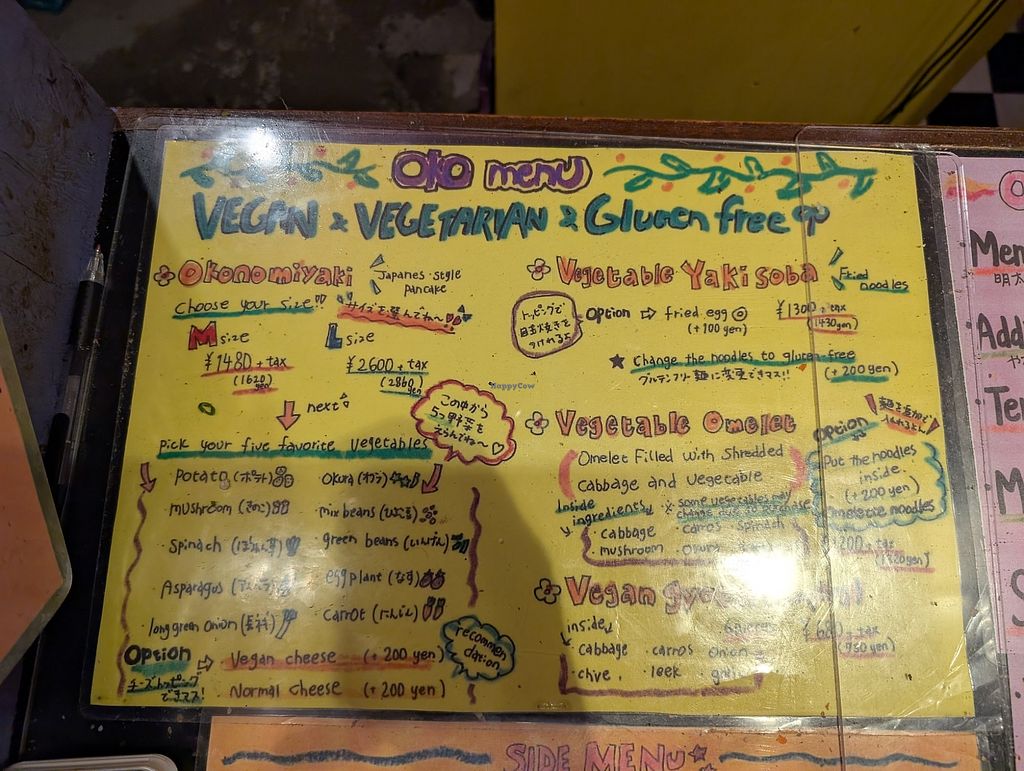 OKO menu
VEGAN & VEGETARIAN & Gluten free
Okonomiyaki
Japanes style
pancake
choose your size!!
サイズを選んでね〜
M size
¥1480 + tax
(1620 yen)
L size
¥2600 + tax
(2860 yen)
next
この中から
5つ野菜を
えらんでね〜
Pick your five favorite vegetables
Potato (ポテト)
Okura (オクラ)
mushroom (きのこ)
mix beans (ひよこ豆)
Spinach (ほうれん草)
green beans (いんげん)
Asparagus
eggplant (なす)
long green onion (長ネギ)
carrot (にんじん)
Option
チーズトッピング
できマス!
Vegan cheese (+200 yen)
Normal cheese (+200 yen)
recommendation
Vegetable Yaki soba
Fried
noodles
トッピングで
目玉焼きを
つけれるよ
Option ⇨ fried egg
(+100 yen)
¥1300 + tax
(1430 yen)
★ Change the noodles to gluten free
グルテンフリー麺に変更できマス!!
(+200 yen)
Vegetable Omelet
Omelet Filled with Shredded
Cabbage and vegetable
Inside
ingredients
※ some vegetables may
change due to purchase
・cabbage ・carros ・spinach
・mushroom ・okura
Option
Put the noodles
inside.
(+200 yen)
noodles
+ tax
Vegan
inside
・cabbage ・carros ・onion
・chive, ・leek
+ tax
(750 yen)
SIDE MENU
Men
明太
Add
Te
M
S
HappyCow